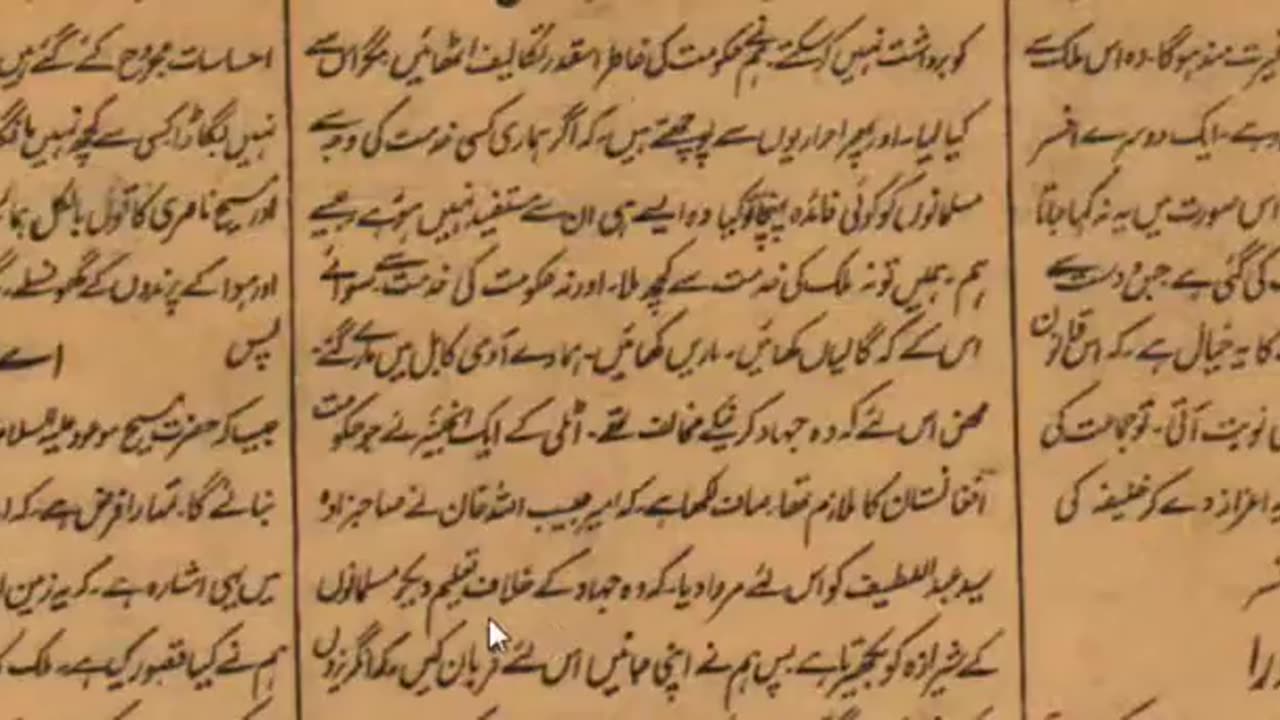 غیرت مند ہوگا۔ وہ اس ملک سے
ہے۔ ایک دوسرے افسر
اس صورت میں یہ نہ کہا جاتا
کی گئی ہے۔ جس میں دست سے
کا یہ خیال ہے۔ کہ اس قانون
نوبت آتی۔ تو جماعت کی
اعزاز دے کر خلیفہ کی
کو برداشت نہیں کر سکتے۔ ہم حکومت کی خاطر اسقدر تکالیف اٹھائیں مگر اس سے
کیا لیا۔ اور پھر احراریوں سے پوچھتے ہیں۔ کہ اگر ہماری کسی خدمت کی وجہ سے
مسلمانوں کو کوئی فائدہ پہنچا تو کیا وہ ایسے ہی ان سے مستفید نہیں ہوئے جیسے
ہم۔ ہمیں تو نہ ملک کی خدمت سے کچھ ملا۔ اور نہ حکومت کی خدمت سے سوائے
اس کے کہ گالیاں کھائیں۔ ماریں کھائیں۔ ہمارے آدمی کابل میں مارے گئے۔
محض اس لئے کہ وہ جہاد کرنیکے مخالف تھے۔ اٹلی کے ایک انجنیئر نے جو حکومت
افغانستان کا ملازم تھا۔ صاف لکھا ہے کہ امیر حبیب اللہ خان نے صاحبزادہ
سید عبداللطیف کو اس لئے مروا دیا۔ کہ وہ جہاد کے خلاف تعلیم دیکر مسلمانوں
کے شیرازہ کو بکھیرتا ہے پس ہم نے اپنی جانیں اس لئے قربان کیں کہ انگریزوں
احساسات مجروح کئے گئے ہیں
نہیں بگاڑا کسی سے کچھ نہیں
اور مسیح ناصری کا قول بالکل
اور ہوا کے پرندوں کے گھونسلے۔
پس اے
جیسا کہ حضرت مسیح موعود علیہ السلام
بنائے گا۔ تمہارا فرض ہے۔ کہ
میں یہی اشارہ ہے۔ کہ یہ زمین
ہم نے کیا قصور کیا ہے۔ ملک